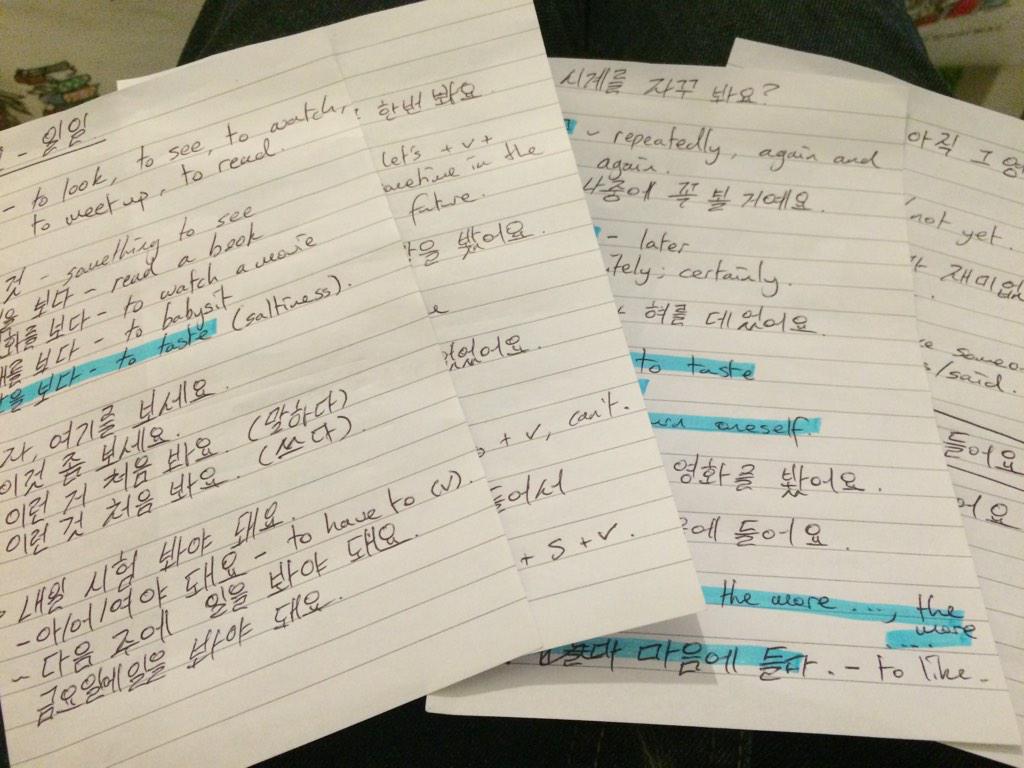 - 일일
- to look, to see, to watch,
to meet up, to read.
것 - something to see
보다 - read a book
화를 보다 - to watch a movie
를 보다 - to babysit
을 보다 - to taste (saltiness).
자, 여기를 보세요.
이것 좀 보세요.
이런 건 처음 봐요. (말하다)
이런 것 처음 봐요. (쓰다)
내일 시험 봐야 돼요.
- 아/어/여야 돼요 - to have to (v).
- 다음 주에 일을 봐야 돼요.
금요일에 일을 봐야 돼요.
한번 봐요.
let's + v +
sometime in the
future.
을 봤어요.
없었어요.
+ v, can't.
들어서
+ S + v.
시계를 자꾸 봐요?
- repeatedly, again and
again.
나중에 꼭 볼 거예요.
- later
certainly.
혀를 데었어요.
to taste
burn oneself.
영화를 봤어요.
에 들어요.
the more ..., the
more
....
마음에 들다. - to like.
아직 그 영
not yet.
재미없
someo
/said.
들어요
어요